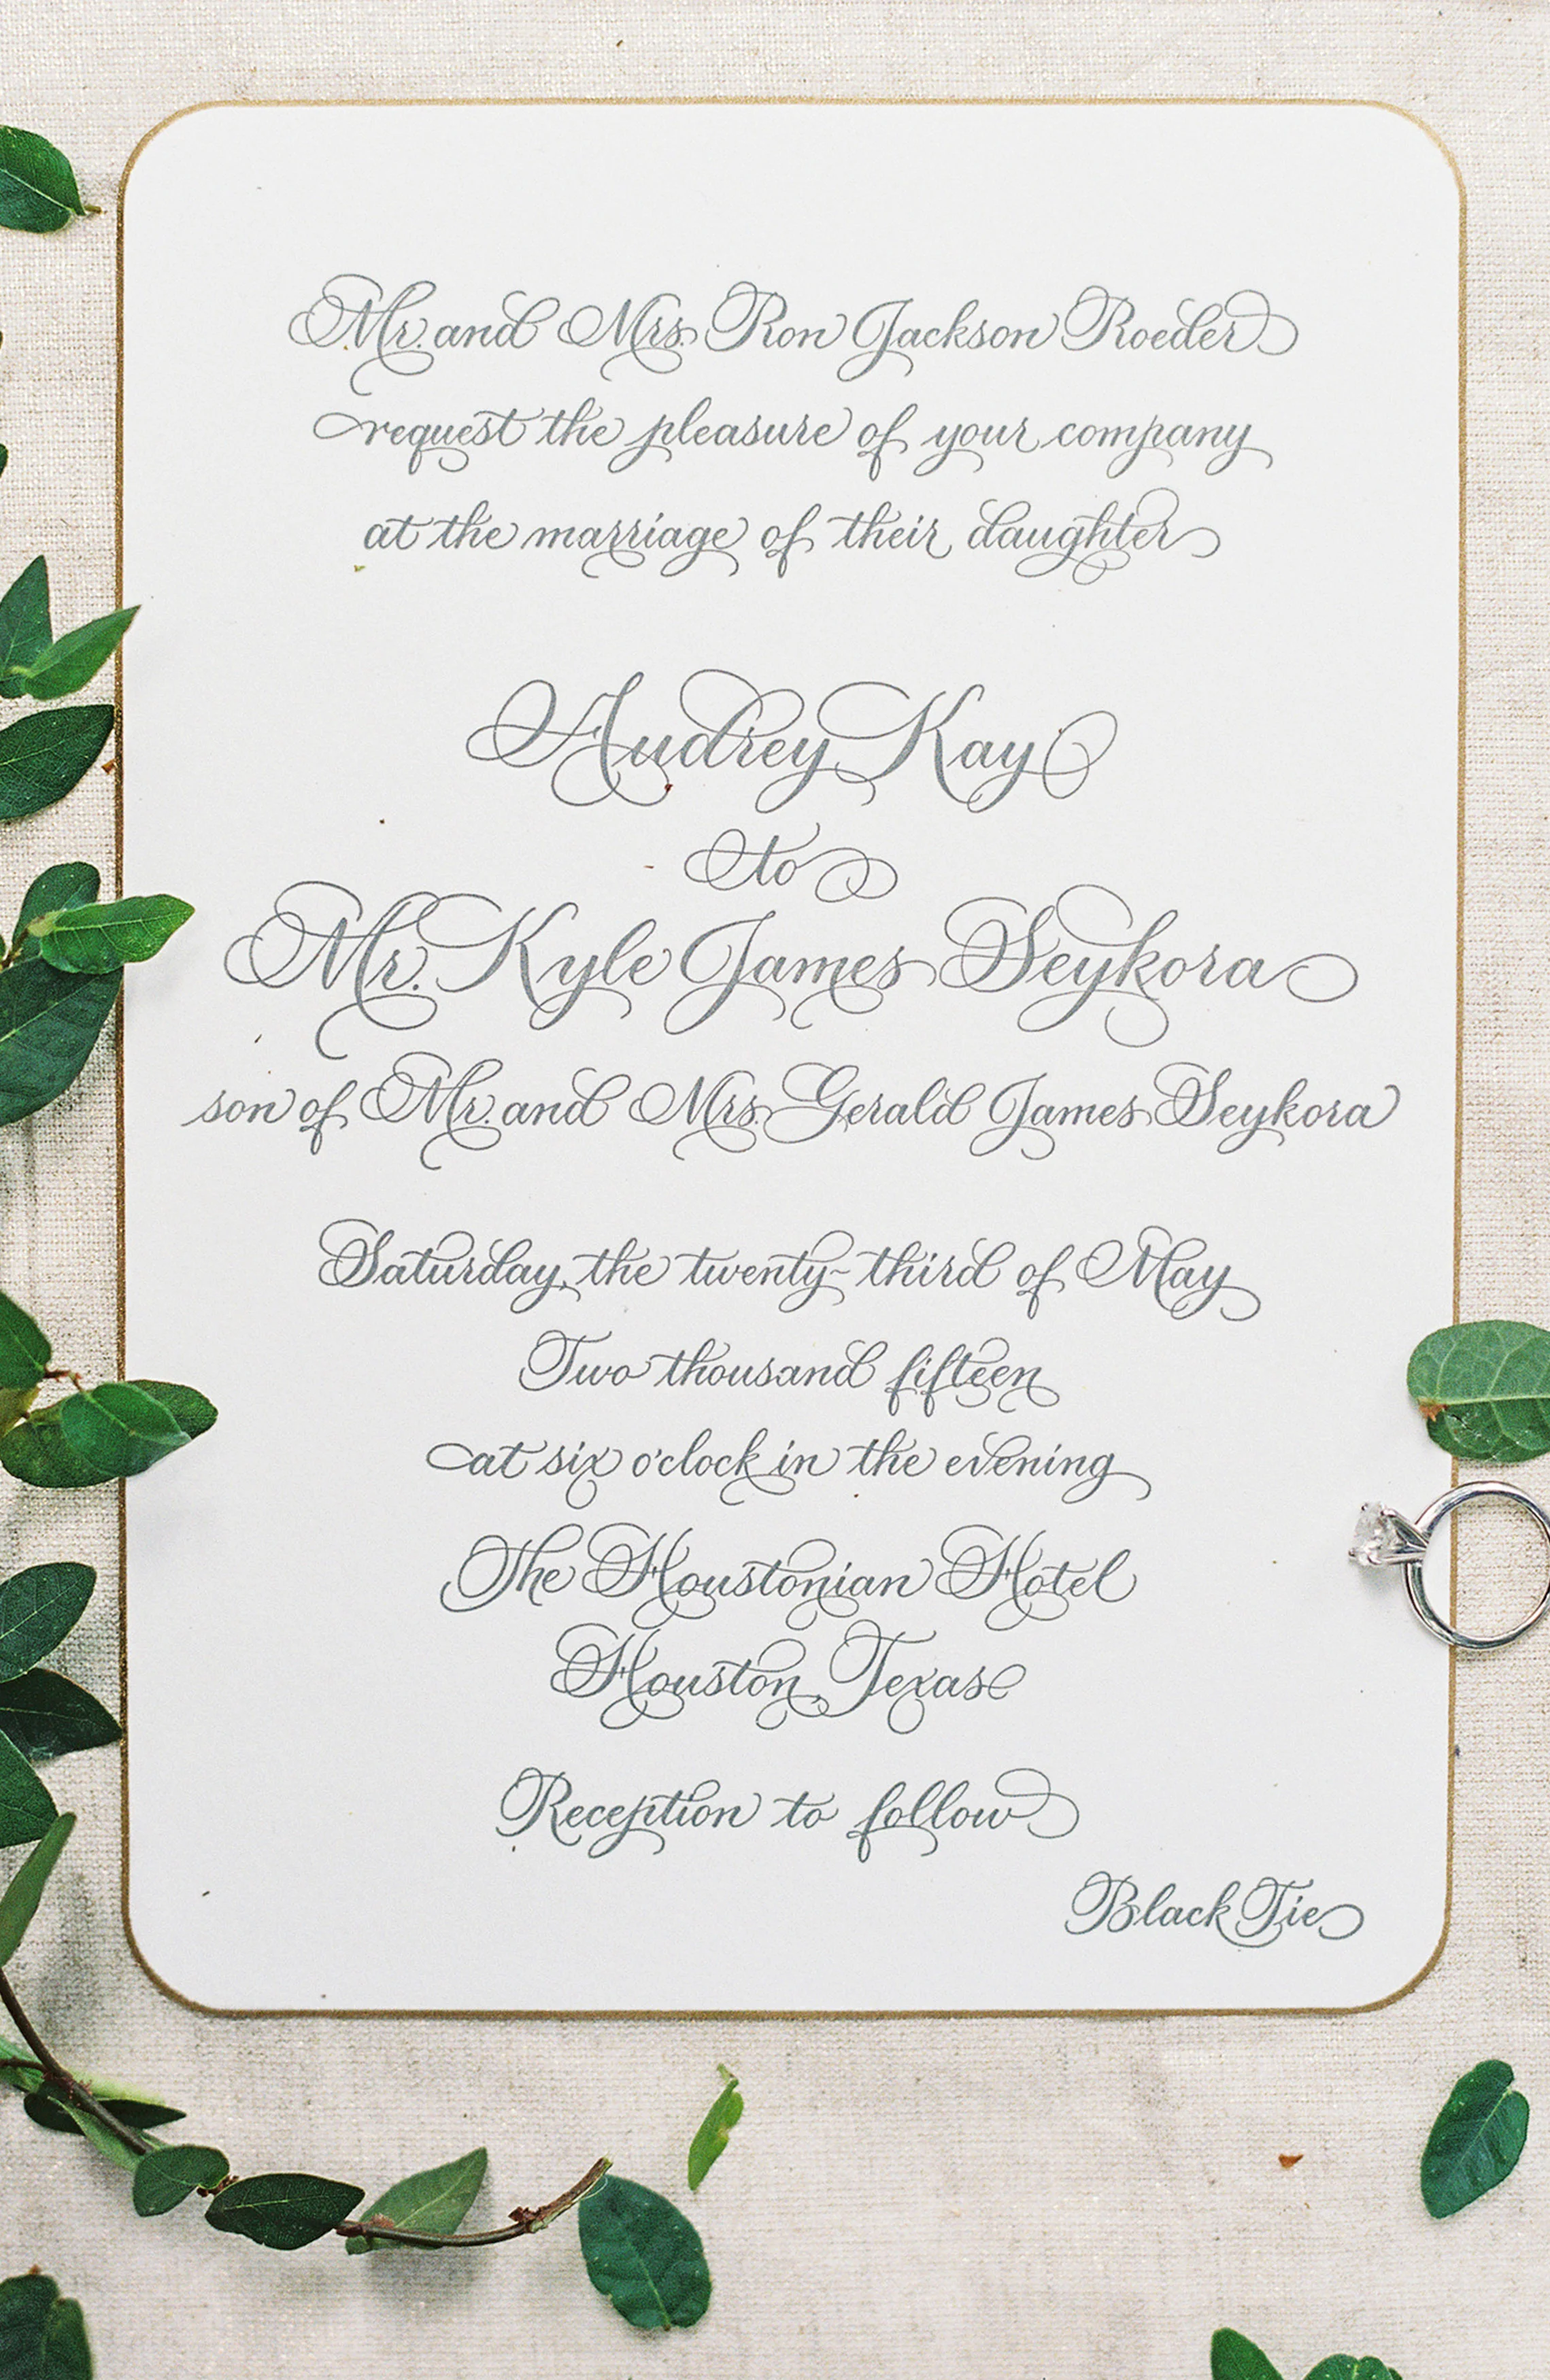 Mr. and Mrs. Ron Jackson Roeder
request the pleasure of your company
at the marriage of their daughter
Audrey Kay
to
Mr. Kyle James Seykora
son of Mr. and Mrs. Gerald James Seykora
Saturday, the twenty-third of May
Two thousand fifteen
at six o'clock in the evening
The Houstonian Hotel
Houston, Texas
Reception to follow
Black Tie